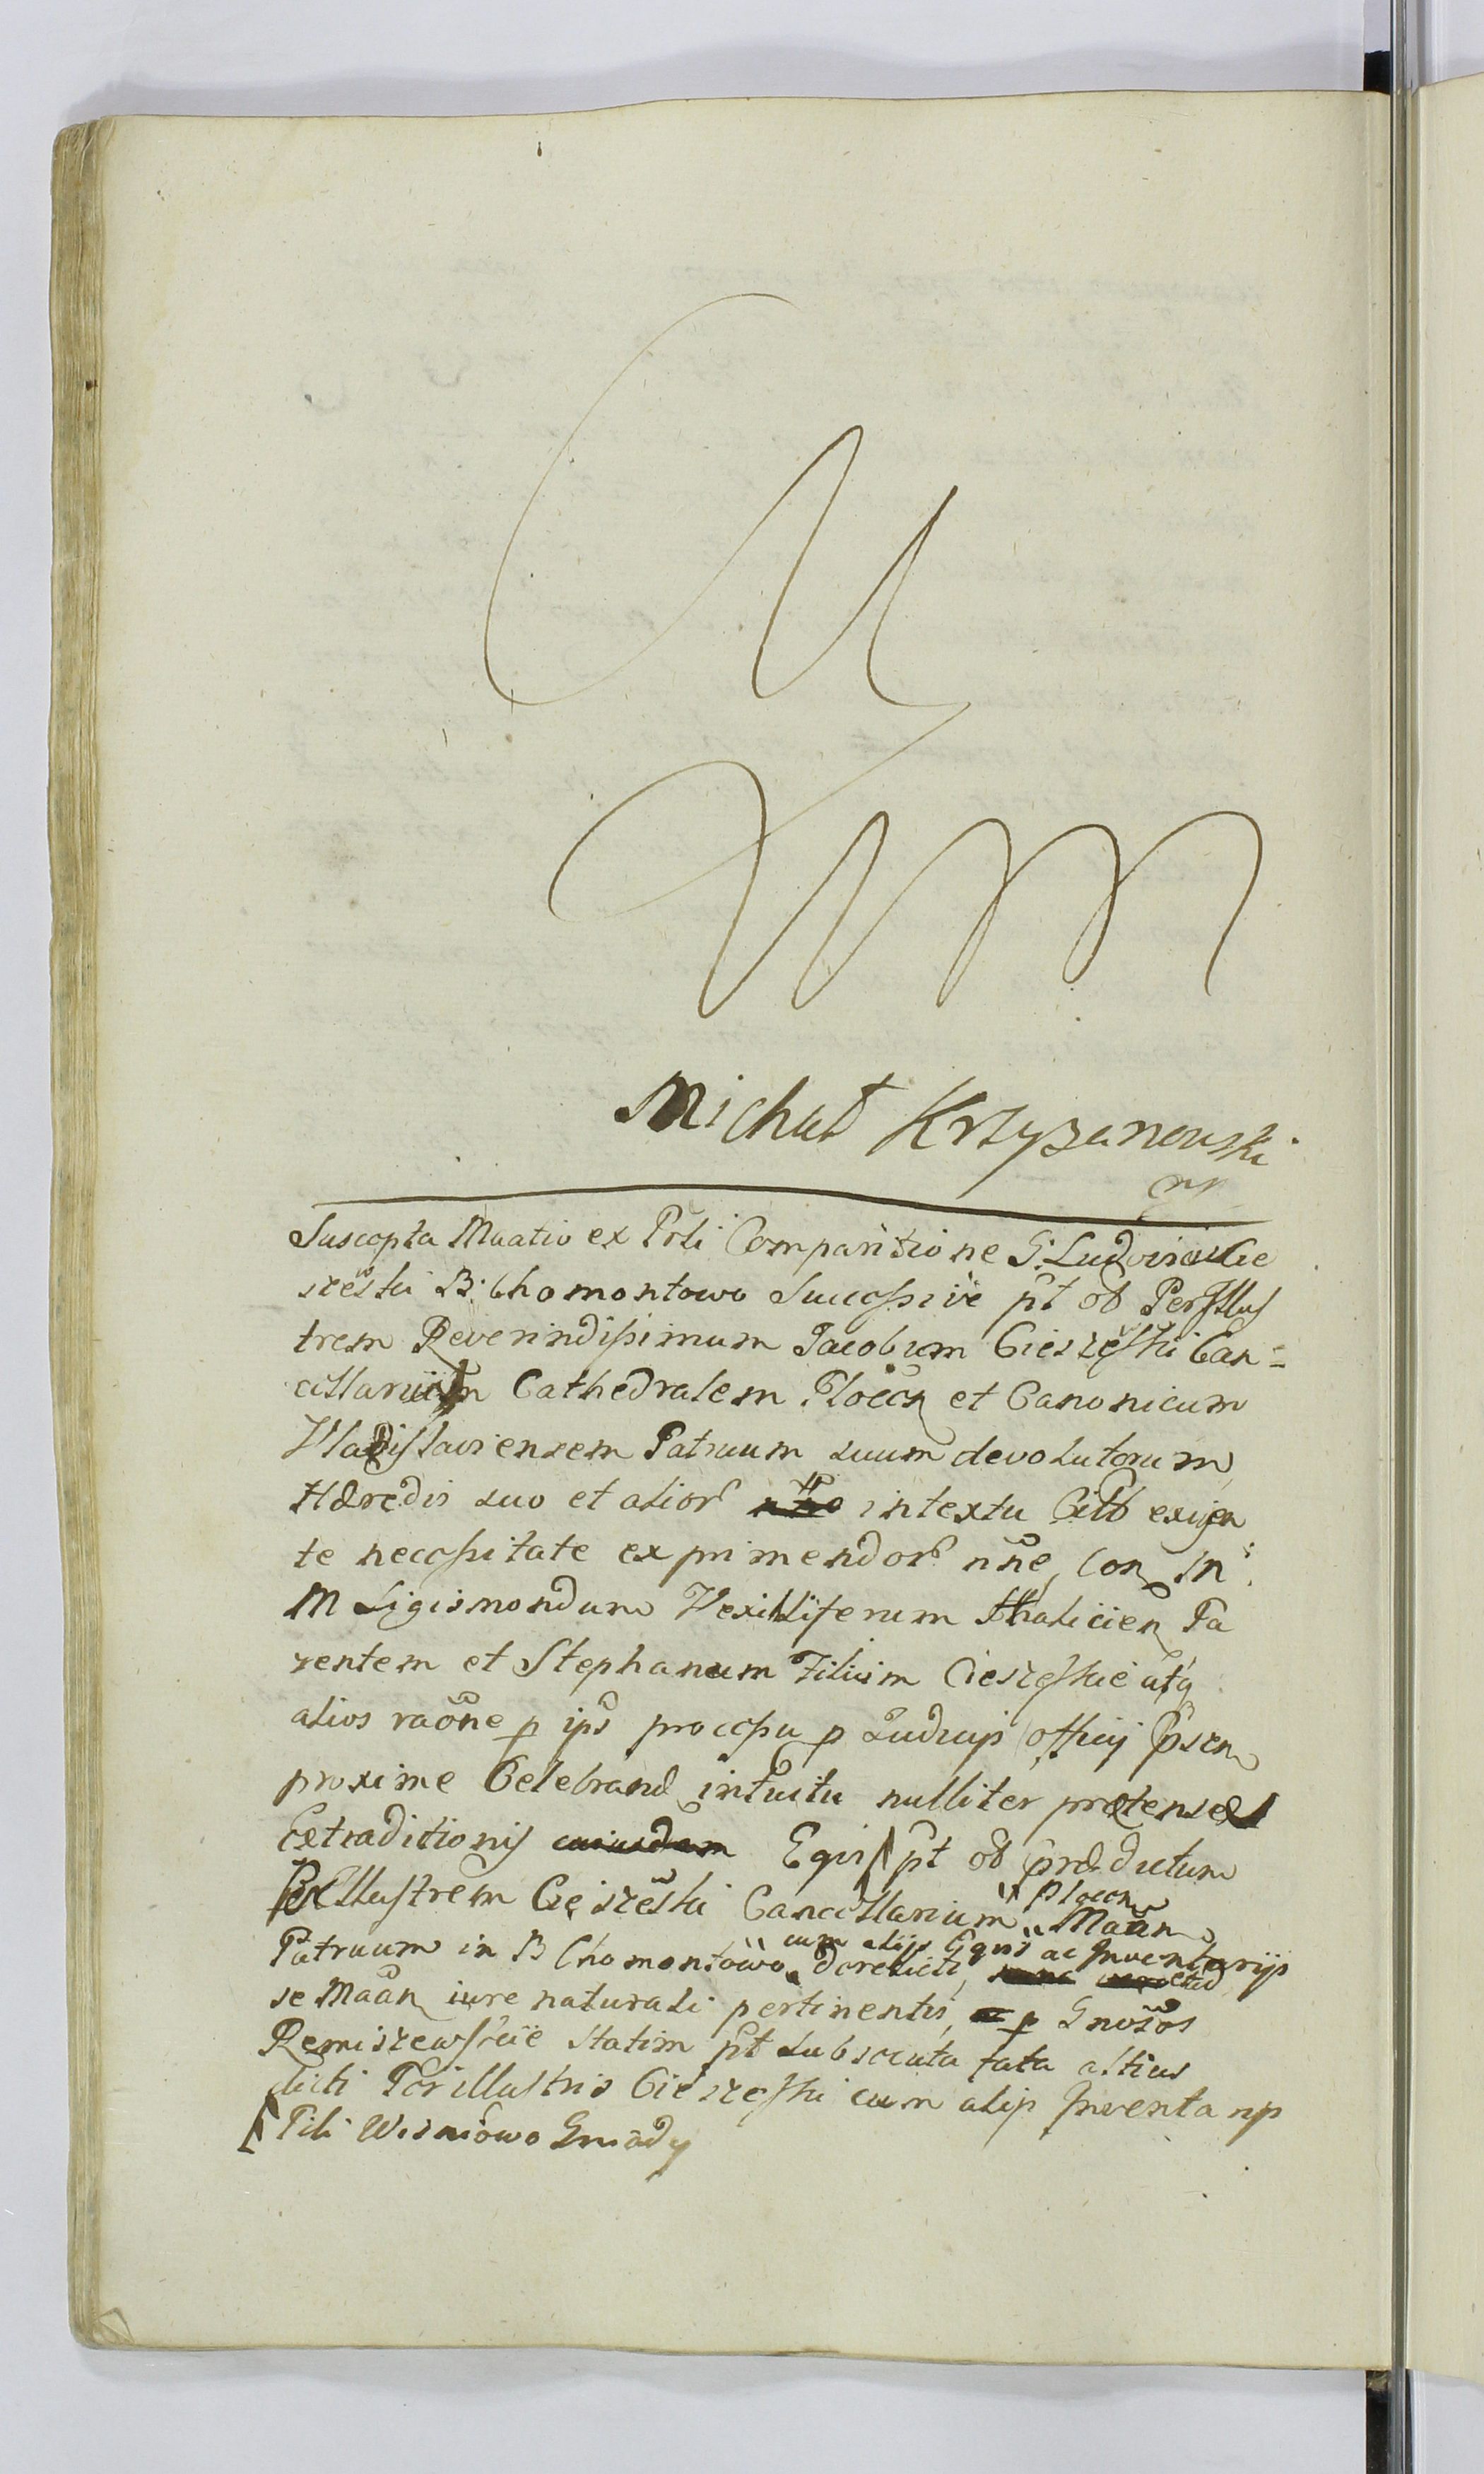 Michał Krzyzanowski
mp
Suscepta Maatio ex Prli Comparitione G. Ludovici Cie
szeski B. Chomontowo Successive pt ob Perillus
trem Reverindissimum Jacobum Cieszeski Can=
cellarium Cathedralem Plocen et Canonicum
Vladislaviensem Patruum suum devolutorum
Hæredis suo et alior intextu Citb exigen
te necessitate exprimendor nne, Con In
M Sigismondum Vexilliferum Halicien Pa
rentem et Stephanum Filium Cieszeskie atq
alios raõne p ips processu p Iudicys officy Psen
proxime Celebrand intuitu nulliter prætensæ
Extraditionis cuiusdam Equi pt ob prædictum
Perillustrem Cieszeski Cancellarium Plocen Maan
Patruum in B Chomontowo cum alijs Equis ac Inventarijs derelicti,
se Maan iure naturali pertinentis, p Gnosos
Remiszewskie statim pt subsecuta fata altius
dicti Perillustris Cieszeski cum alijs Inventa np
Pili Wisniowo Gniady